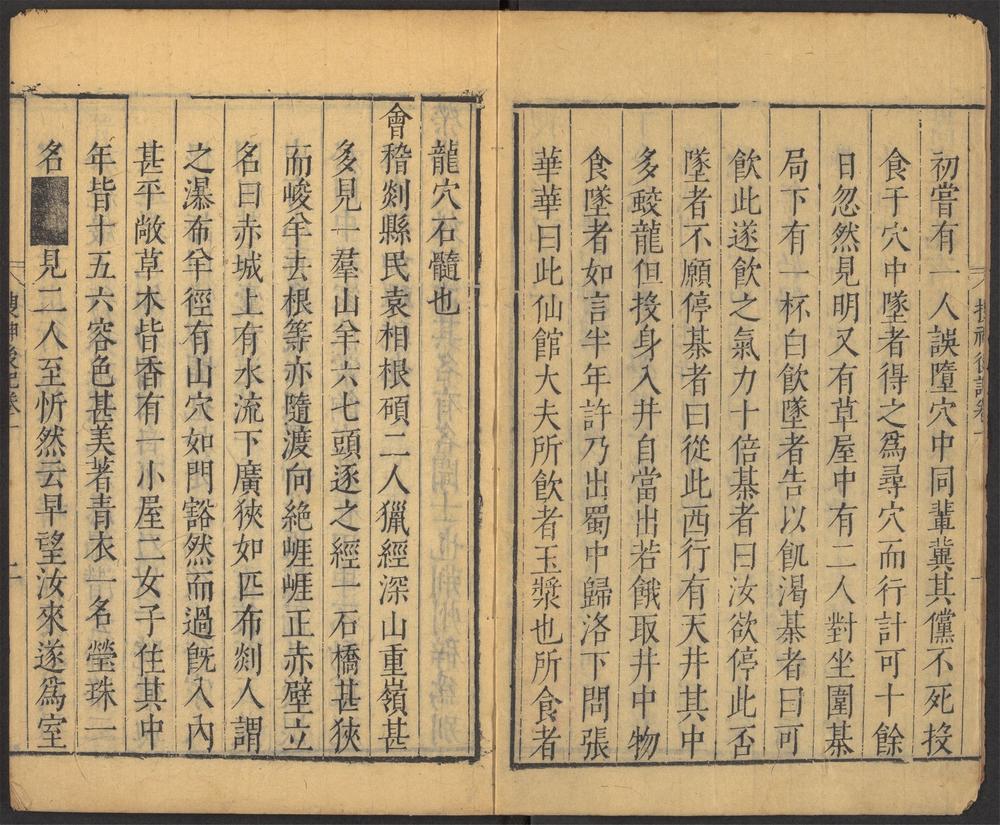 初嘗有一人誤墮穴中同輩冀其儻不死投
食于穴中墜者得之爲尋穴而行計可十餘
日忽然見明又有草屋中有二人對坐圍棊
局下有一杯白飲墜者告以飢渴棊者曰可
飲此遂飲之氣力十倍棊者曰汝欲停此否
墜者不願停棊者曰從此西行有天井其中
多蛟龍但投身入井自當出若餓取井中物
食墜者如言半年許乃出蜀中歸洛下問張
華華曰此仙館大夫所飲者玉漿也所食者
龍穴石髓也
會稽剡縣民袁相根碩二人獵經深山重嶺甚
多見一羣山羊六七頭逐之經一石橋甚狹
而峻羊去根等亦隨渡向絶崕崕正赤壁立
名曰赤城上有水流下廣狹如匹布剡人謂
之瀑布羊徑有山穴如門豁然而過旣入內
甚平敞草木皆香有一小屋二女子住其中
年皆十五六容色甚美著青衣一名瑩珠一
名 見二人至忻然云早望汝來遂爲室
搜神後記卷一